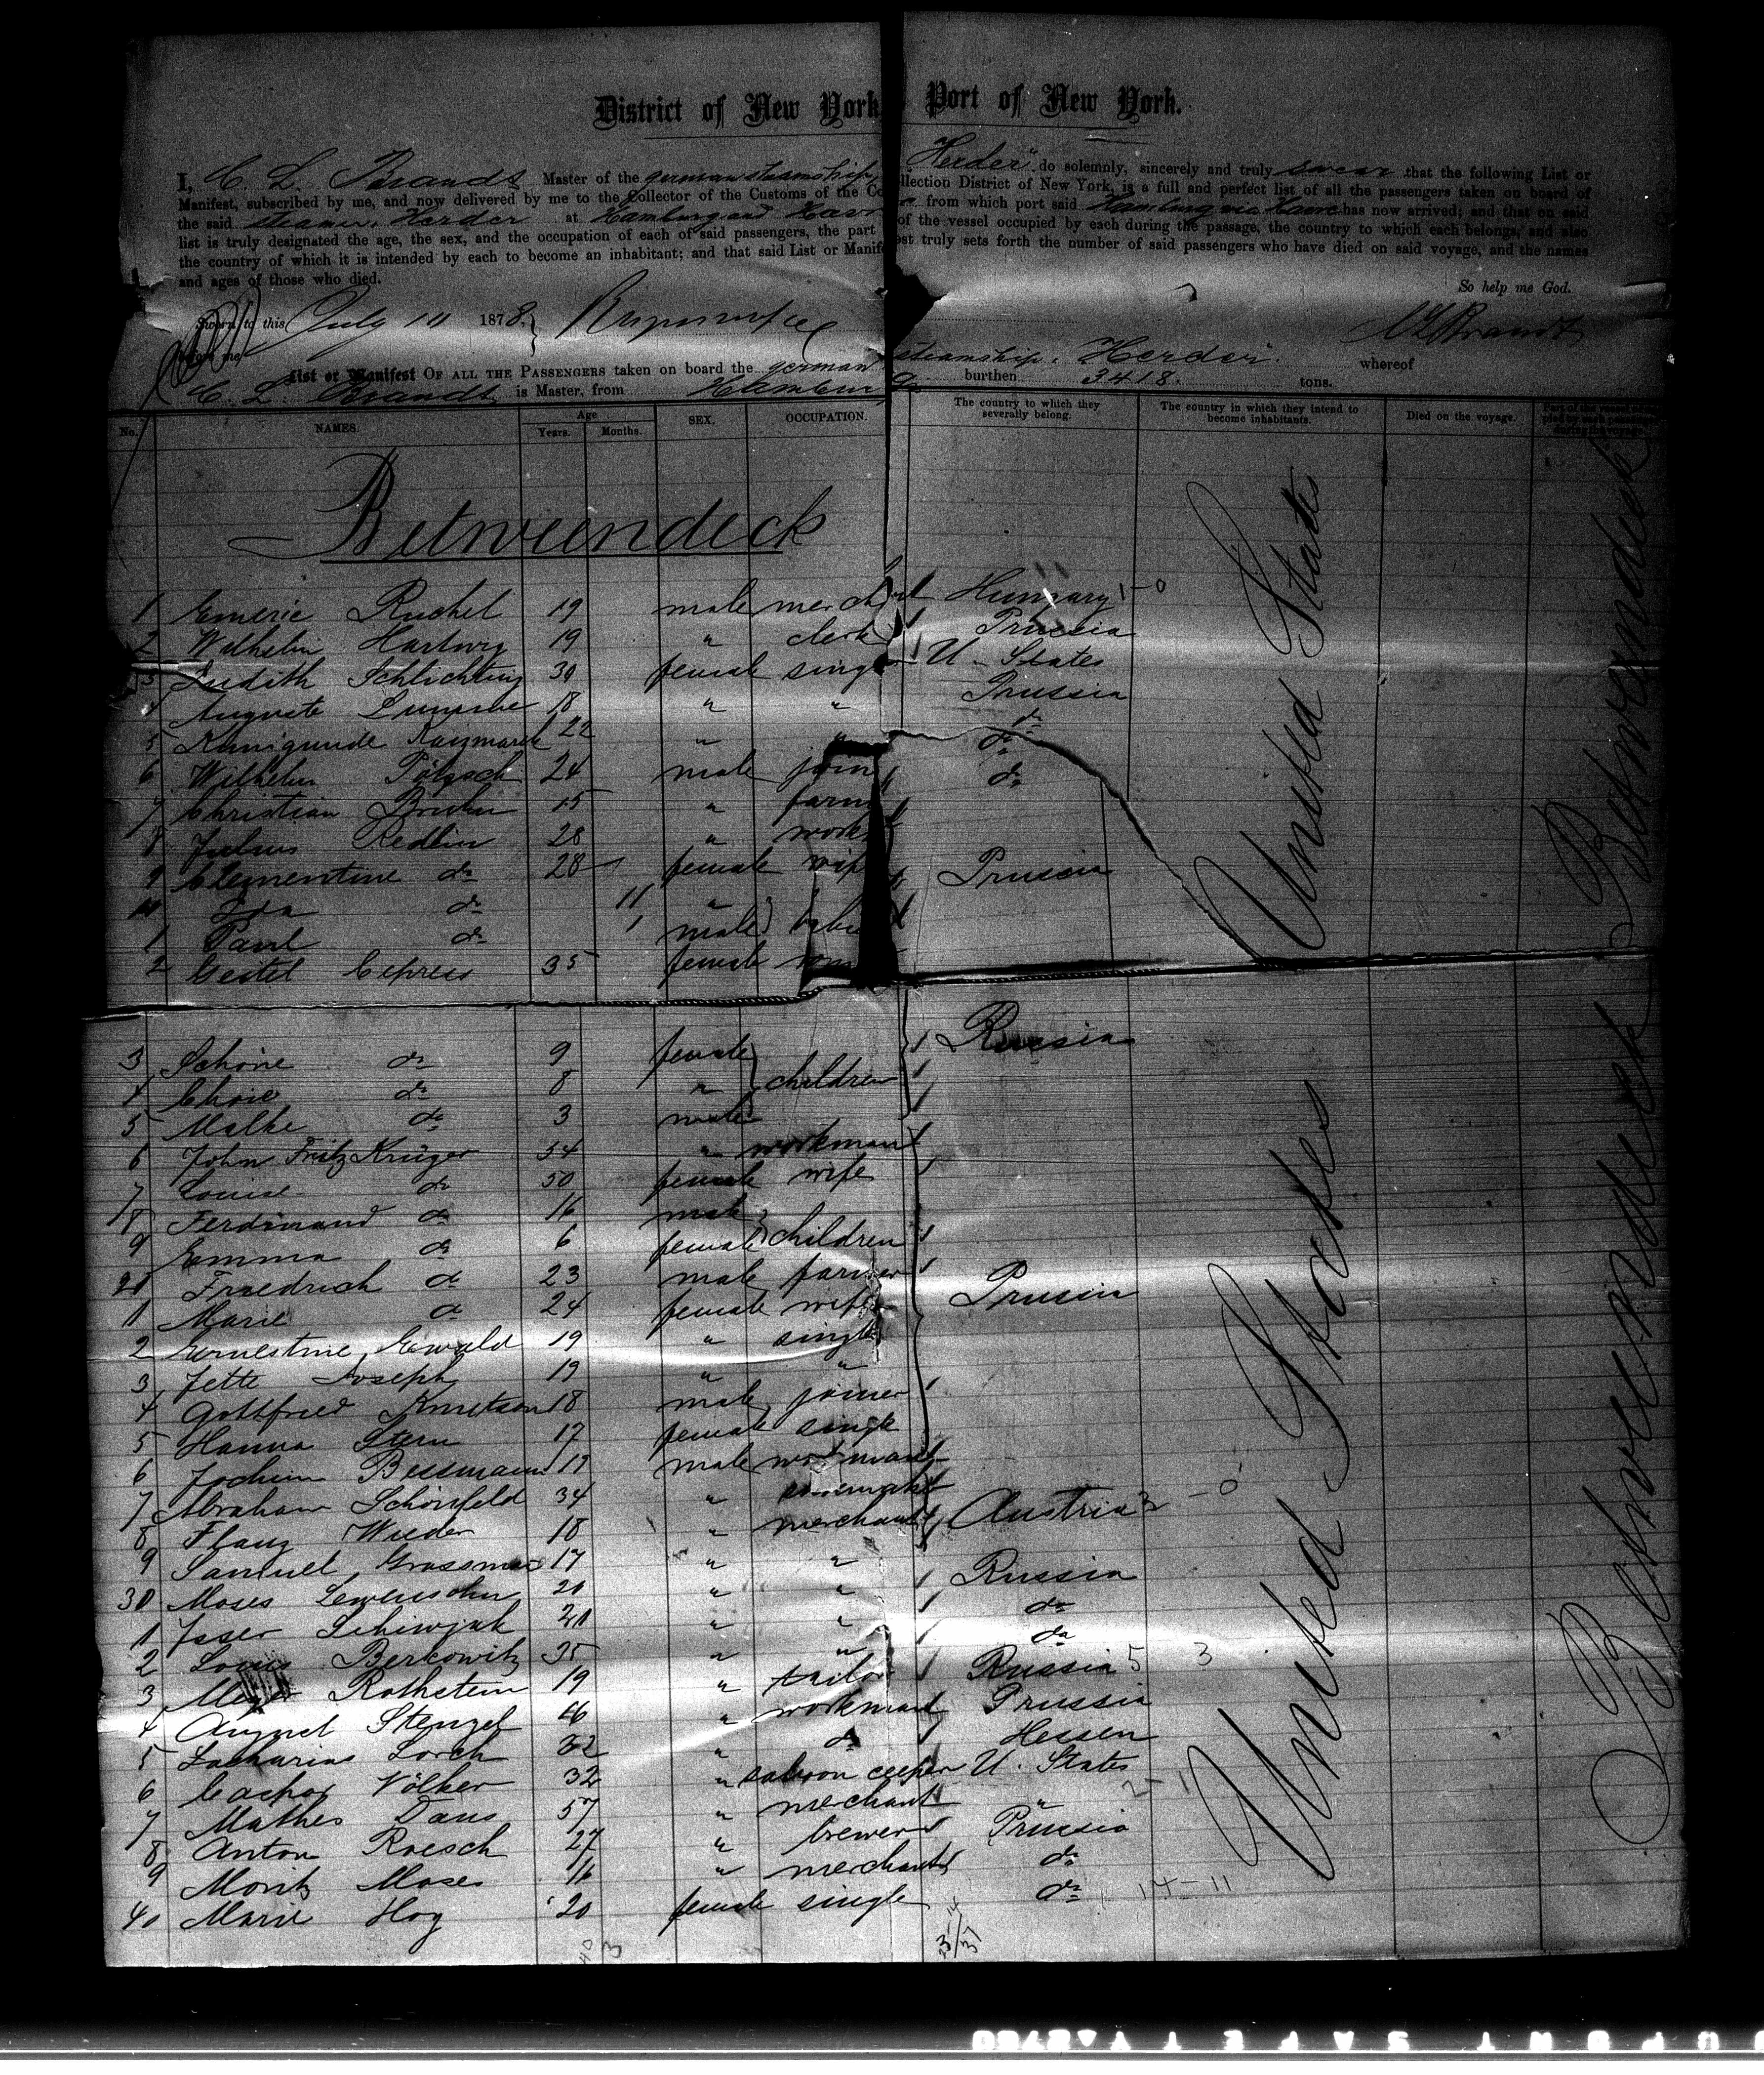 District of New York, Port of New York.
I, C. L. Brandt Master of the german steamship Herder do solemnly, sincerely and truly swear that the following List or
Manifest, subscribed by me, and now delivered by me to the Collector of the Customs of the Collection District of New York, is a full and perfect list of all the passengers taken on board of
the said steamer Herder at Hamburg and Havre from which port said Hamburg via Havre has now arrived; and that on said
list is truly designated the age, the sex, and the occupation of each of said passengers, the part of the vessel occupied by each during the passage, the country to which each belongs, and also
the country of which it is intended by each to become an inhabitant; and that said List or Manifest truly sets forth the number of said passengers who have died on said voyage, and the names
and ages of those who died.
So help me God.
Sworn to this July 1878 CLBrandt
before me
List or Manifest OF ALL THE PASSENGERS taken on board the german steamship Herder whereof
C. L. Brandt is Master, from Hamburg burthen 3418. tons.
No. NAMES. Age Years. Months. SEX. OCCUPATION. The country to which they severally belong. The country in which they intend to become inhabitants. Died on the voyage.
Betweendeck
1 Emeric Ruchel 19 male merchant Hungary 1-0
2 Wilhelm Hartwig 19 " clerk Prussia
3 Judith Schlichting 30 female single U-States
4 Auguste 18 " " Prussia
5 Kunigunde Kaczmarek 22 " " do
6 Wilhelm Pötzsch 24 male join do
7 Christian 15 " farm do
8 Julius Redlin 28 " work
9 Clementine do 28 female wife Prussia
10 Ida do 11 "
1 Paul do 1 male
2 Geitel Cepress 35 female
3 Schöne do 9 female Russia
4 Choie do 8 " children
5 Malke do 3 male
6 John Fritz Krüger 54 " workman
7 Louise do 50 female wife
18 Ferdinand do 16 male
9 Emma do 6 female children
20 Friedrich do 23 male farmer
1 Marie do 24 female wife Prussia
2 Ernestine Ewald 19 " single
3 Jette Joseph 19 " "
4 Gottfried Knutson 18 male joiner
5 Hanna Stern 17 female single
6 Jochim Bessmann 17 male workman
7 Abraham Schönfeld 34 "
8 Franz Wieder 18 " merchant Austria 3 - 0
9 Samuel Grossman 17 " "
30 Moses Lewensohn 20 " " Russia
1 Isser Schiwjak 20 " " do
2 Louis Berkowitz 35 " " do
3 Meyer Rothstein 19 " tailor Russia 5 3
4 August Stenzel 46 " workman Prussia
5 Zacharias Lorch 32 " do Hessen
6 Caspar Völker 32 " saloon ceeper U. States
7 Mathes Daus 57 " merchant " 2-1
8 Anton Roesch 27 " brewer Prussia
9 Moritz Moses 16 " merchant do
40 Marie Hog 20 female single do 14-11
United States
Betweendeck
United States
Betweendeck